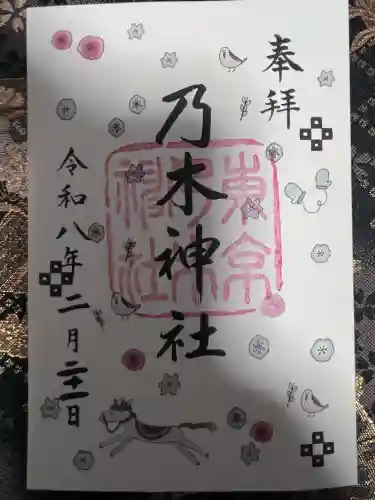 奉拝
乃木神社
東京乃木神社
令和八年二月二十二日